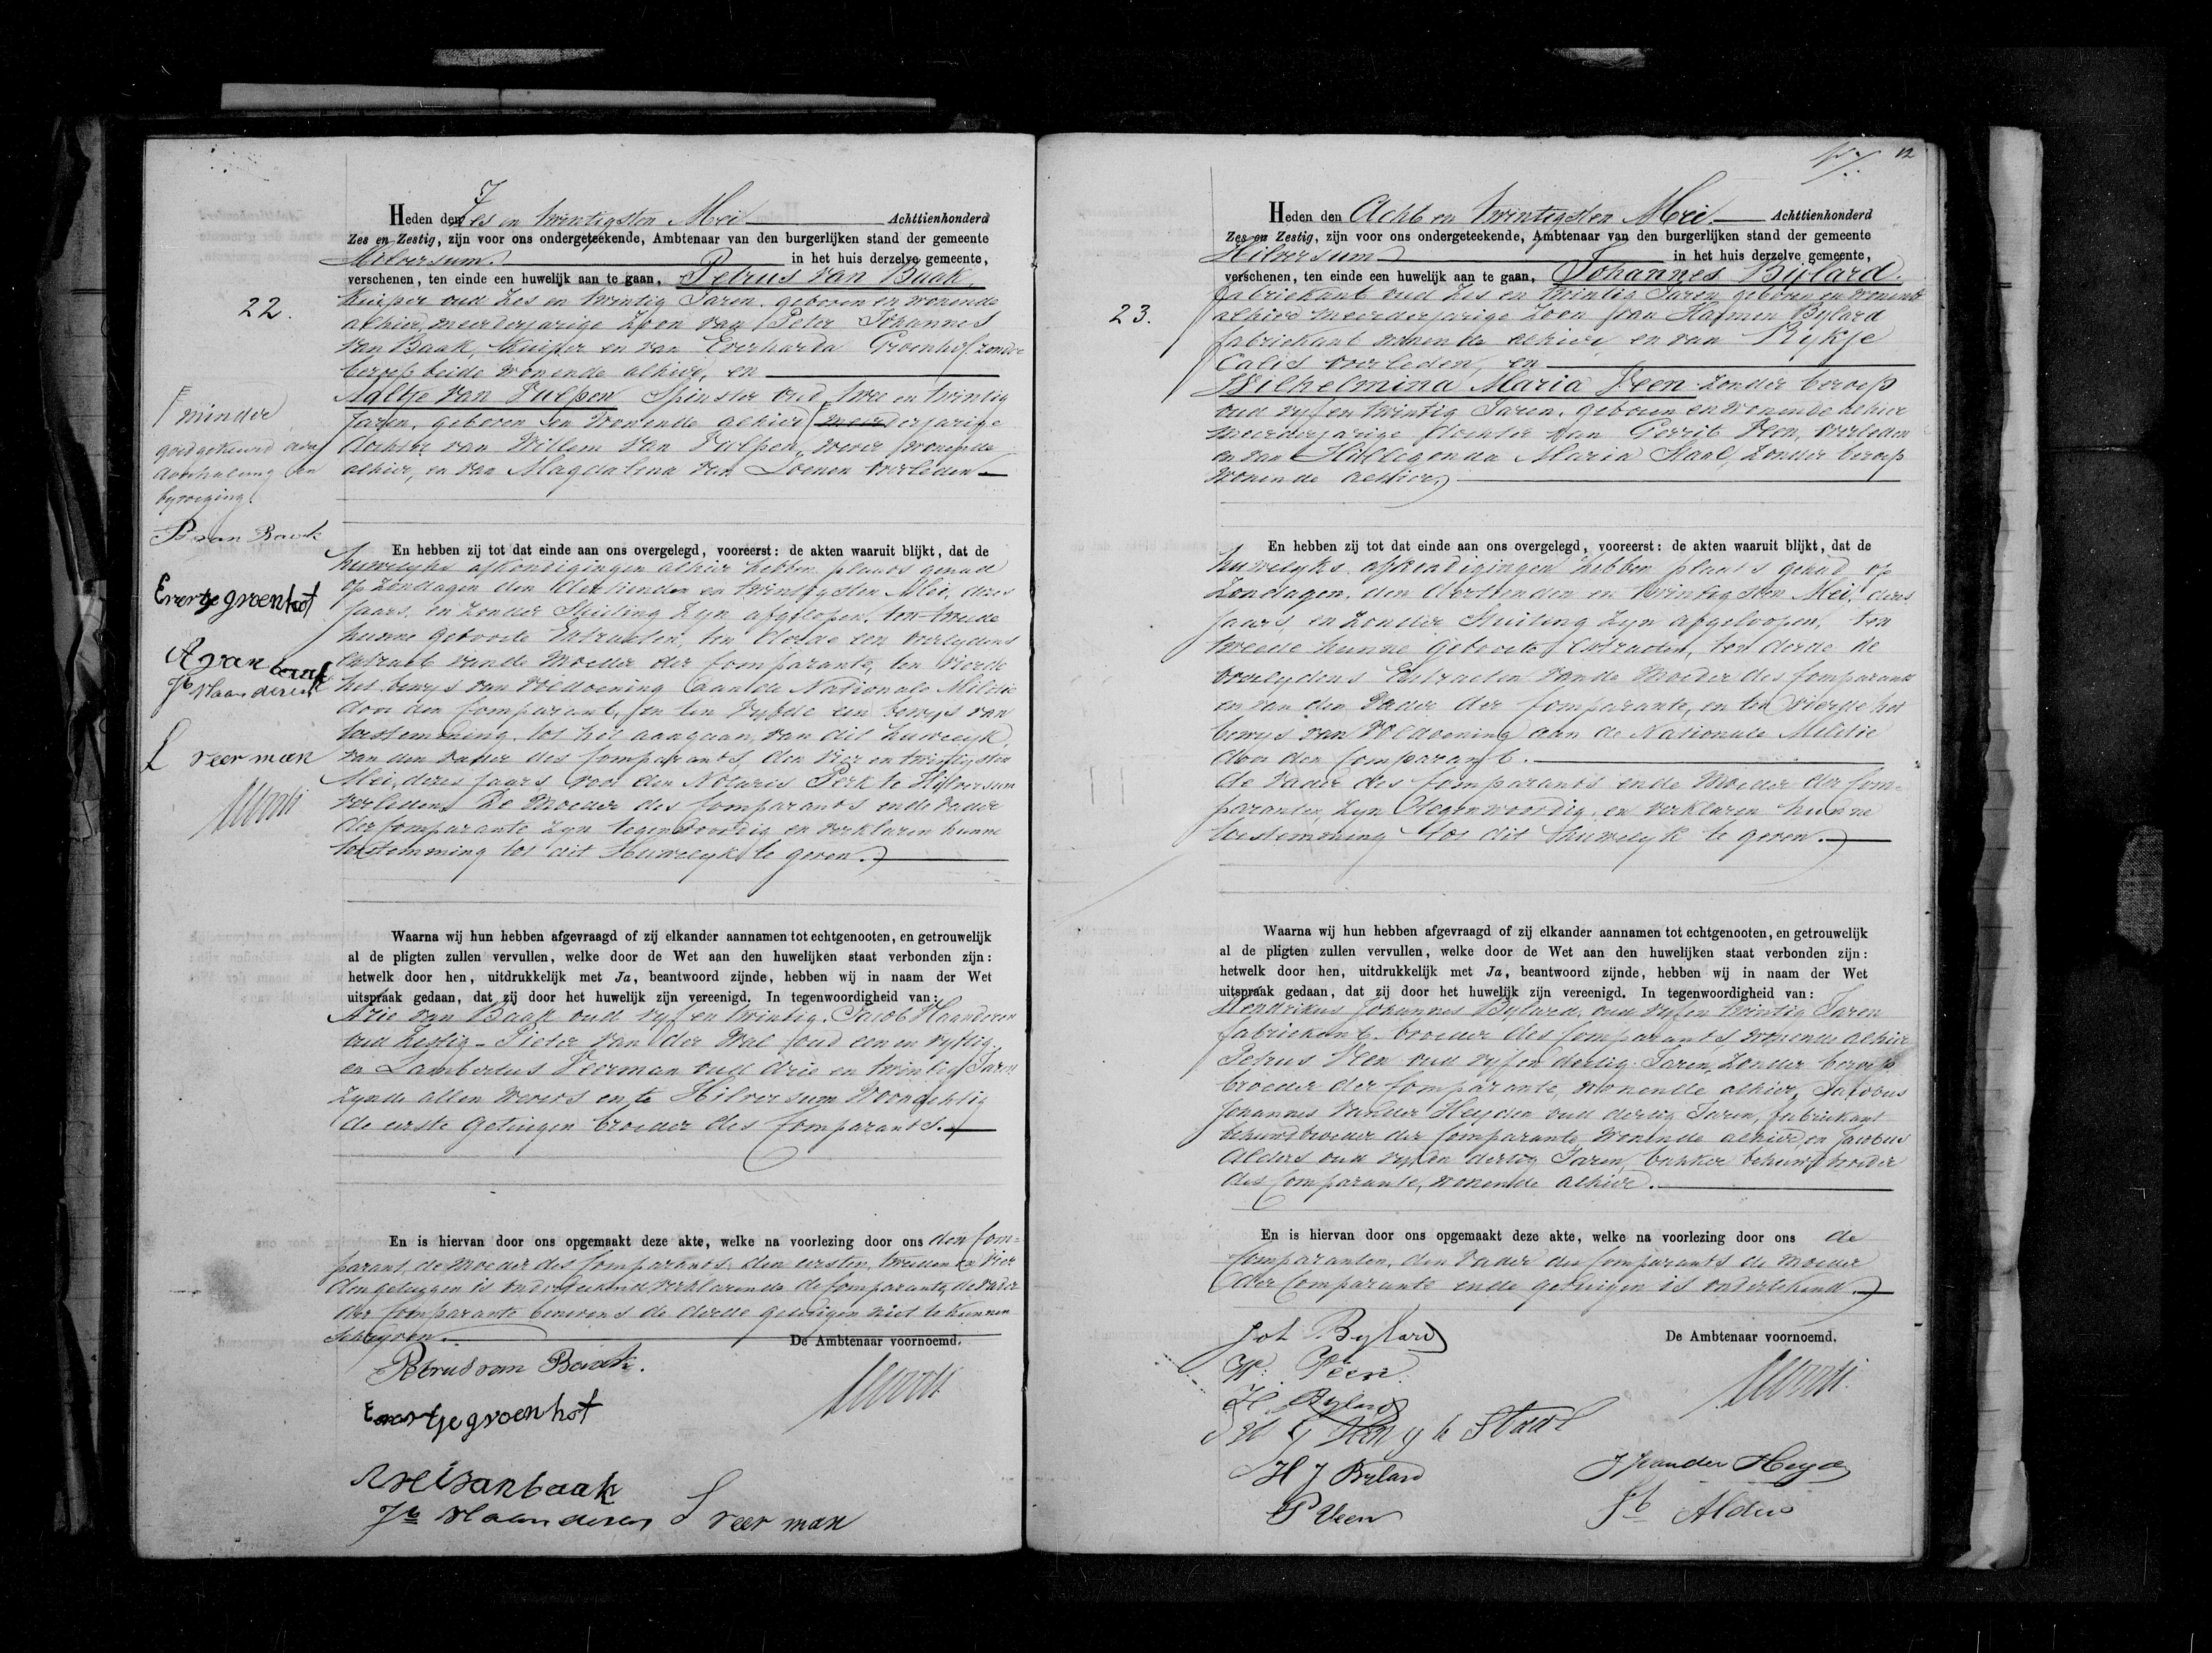 22.
Heden den Zes en twintigsten Mei Achttienhonderd
Zes en Zestig, zijn voor ons ondergeteekende, Ambtenaar van den burgerlijken stand der gemeente
Hilversum in het huis derzelve gemeente,
verschenen, ten einde een huwelijk aan te gaan, Petrus van Baak,
Kuiper oud Zes en twintig Jaren, geboren en wonende
alhier, meerderjarige Zoon van Peter Johannes
van Baak, Kuiper en van Everharda Groenhof, zonder
beroep beide wonende alhier, en
Aaltje van Vulpen Spinster oud twee en twintig
Jaren, geboren en wonende alhier meerderjarige
dochter van Willem van Vulpen, wever wonende
alhier, en van Magdalena van Loenen overleden
minder
goedgekeurd
doorhaling en
byvoeging
P van Baak
Evertje groenhof
A van baak
Jb Vlaanderen
L veerman
En hebben zij tot dat einde aan ons overgelegd, vooreerst: de akten waaruit blijkt, dat de
huwelyks afkondigingen alhier hebben plaats gehad
op Zondagen den dertienden en twintigsten Mei, dezes
jaars, en zonder Stuiting zyn afgeloopen, ten tweede
hunne geboorte Extracten, ten derde een overlydens
extract van de Moeder der Comparante, ten vierde
het bewys van voldoening aan de Nationale Militie
door den Comparant, en ten vyfde een bewys van
toestemming tot het aangaan van dit huwelyk,
van den vader des Comparants, den vier en twintigsten
Mei, dezes jaars voor den Notaris Perk te Hilversum
verleden. De Moeder des Comparants en de vader
der Comparante zyn tegenwoordig en verklaren hunne
toestemming tot dit Huwelyk te geven.
Waarna wij hun hebben afgevraagd of zij elkander aannamen tot echtgenooten, en getrouwelijk
al de pligten zullen vervullen, welke door de Wet aan den huwelijken staat verbonden zijn:
hetwelk door hen, uitdrukkelijk met Ja, beantwoord zijnde, hebben wij in naam der Wet
uitspraak gedaan, dat zij door het huwelijk zijn vereenigd. In tegenwoordigheid van:
Arie van Baak oud vyf en twintig, Jacob Vlaanderen
oud Zestig, Pieter van der Wal oud een en vyftig
en Lambertus Veerman oud drie en twintig Jaren
Zynde allen wevers en te Hilversum Woonachtig
de eerste getuigen broeder des Comparants.
En is hiervan door ons opgemaakt deze akte, welke na voorlezing door ons den Com-
parant, de Moeder des Comparants, den eersten, tweeden en vier
den getuigen is onderteekend verklarende de Comparante, de vader
der Comparante benevens de derde getuigen niet te kunnen
schryven.
De Ambtenaar voornoemd.
Petrus van Baak.
Evertje groenhof
Arie van baak
Jb Vlaanderen L veerman
12
23.
Heden den Acht en twintigsten Mei Achttienhonderd
Zes en Zestig, zijn voor ons ondergeteekende, Ambtenaar van den burgerlijken stand der gemeente
Hilversum in het huis derzelve gemeente,
verschenen, ten einde een huwelijk aan te gaan, Johannes Bylard.
fabriekant oud Zes en twintig Jaren geboren en wonende
alhier meerderjarige Zoon van Harmen Bylard
fabriekant wonende alhier en van Rykje
Calis overleden, en
Wilhelmina Maria Veen zonder beroep
oud vyf en twintig Jaren, geboren en wonende alhier
meerderjarige dochter van Gerrit Veen, overleden
en van Hillegonda Maria Staal, zonder beroep
wonende alhier.
En hebben zij tot dat einde aan ons overgelegd, vooreerst: de akten waaruit blijkt, dat de
huwelyks afkondigingen hebben plaats gehad op
Zondagen, den dertienden en twintigsten Mei, dezes
jaars, en zonder Stuiting zyn afgeloopen, ten
tweede hunne geboorte Extracten, ten derde de
overlydens Extracten van de Moeder des Comparants
en van den vader der Comparante, en ten vierde het
bewys van voldoening aan de Nationale Militie
door den Comparant.
de vader des Comparants en de Moeder der Com-
parante, zyn tegenwoordig, en verklaren hunne
toestemming tot dit huwelyk te geven.
Waarna wij hun hebben afgevraagd of zij elkander aannamen tot echtgenooten, en getrouwelijk
al de pligten zullen vervullen, welke door de Wet aan den huwelijken staat verbonden zijn:
hetwelk door hen, uitdrukkelijk met Ja, beantwoord zijnde, hebben wij in naam der Wet
uitspraak gedaan, dat zij door het huwelijk zijn vereenigd. In tegenwoordigheid van:
Hendrikus Johannes Bylard, oud vyf en twintig Jaren
fabriekant broeder des Comparants wonende alhier
Petrus Veen oud vyf en dertig Jaren, zonder beroep
broeder der Comparante, wonende alhier, Jacobus
Johannes van der Heyden oud dertig Jaren, fabriekant
behuwdbroeder der Comparante, wonende alhier, en Jacobus
Alders oud vyf en dertig Jaren, bakker behuwdbroeder
des Comparante, wonende alhier.
En is hiervan door ons opgemaakt deze akte, welke na voorlezing door ons de
Comparanten, den vader des Comparants de moeder
der Comparante en de getuigen is onderteekend.
De Ambtenaar voornoemd.
Joh Bylard
W. Veen
H. Bylard
Veen Staal
H J Bylard
J J van der Heyden
P Veen
Jb Alders